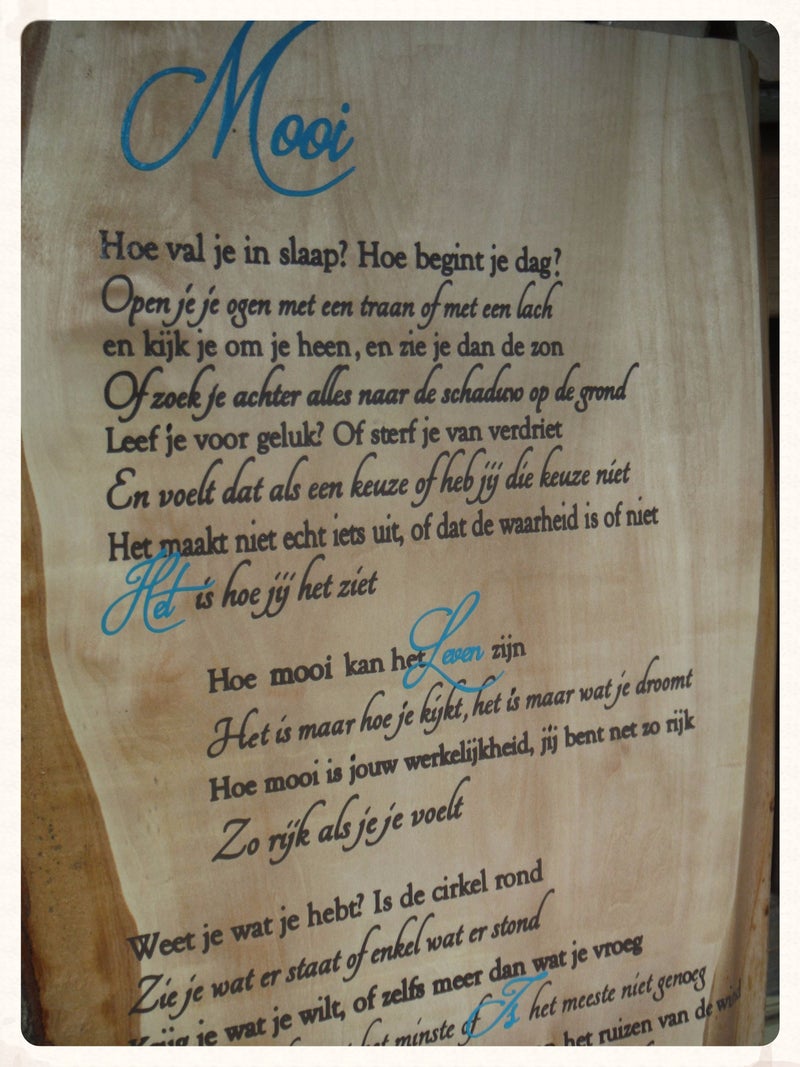 Mooi
Hoe val je in slaap? Hoe begint je dag?
Open je je ogen met een traan of met een lach
en kijk je om je heen, en zie je dan de zon
Of zoek je achter alles naar de schaduw op de grond
Leef je voor geluk? Of sterf je van verdriet
En voelt dat als een keuze of heb jij die keuze niet
Het maakt niet echt iets uit, of dat de waarheid is of niet
Het is hoe jij het ziet
Hoe mooi kan het Leven zijn
Het is maar hoe je kijkt, het is maar wat je droomt
Hoe mooi is jouw werkelijkheid, jij bent net zo rijk
Zo rijk als je je voelt
Weet je wat je hebt? Is de cirkel rond
Zie je wat er staat of enkel wat er stond
Krijg je wat je wilt, of zelfs meer dan wat je vroeg
het minste of Is het meeste niet genoeg
het ruizen van de wind